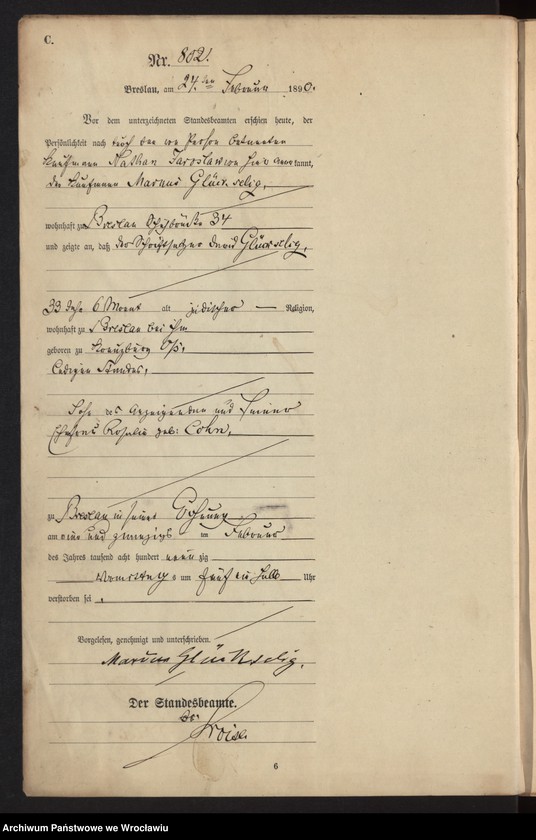 C.
Nr. 802.
Breslau, am 24ten Februar 1890.
Vor dem unterzeichneten Standesbeamten erschien heute, der
Persönlichkeit nach durch den von Person bekannten
Kaufmann Nathan Jaroslaw von hier anerkannt,
der Kaufmann Marcus Glückselig,
wohnhaft zu Breslau Schuhbrücke 34
und zeigte an, daß der Schriftsetzer David Glückselig,
33 Jahr 6 Monat alt jüdischer Religion,
wohnhaft zu Breslau bei ihm
geboren zu Kreuzburg O/S,
ledigen Standes,
Sohn des Anzeigenden und seiner
Ehefrau Rosalie geb: Cohn,
zu Breslau in seiner Wohnung
am ein und zwanzigsten Februar
des Jahres tausend acht hundert neunzig
Vormittags um fünf ein halb Uhr
verstorben sei.
Vorgelesen, genehmigt und unterschrieben.
Marcus Glückselig,
Der Standesbeamte.
6
Archiwum Państwowe we Wrocławiu